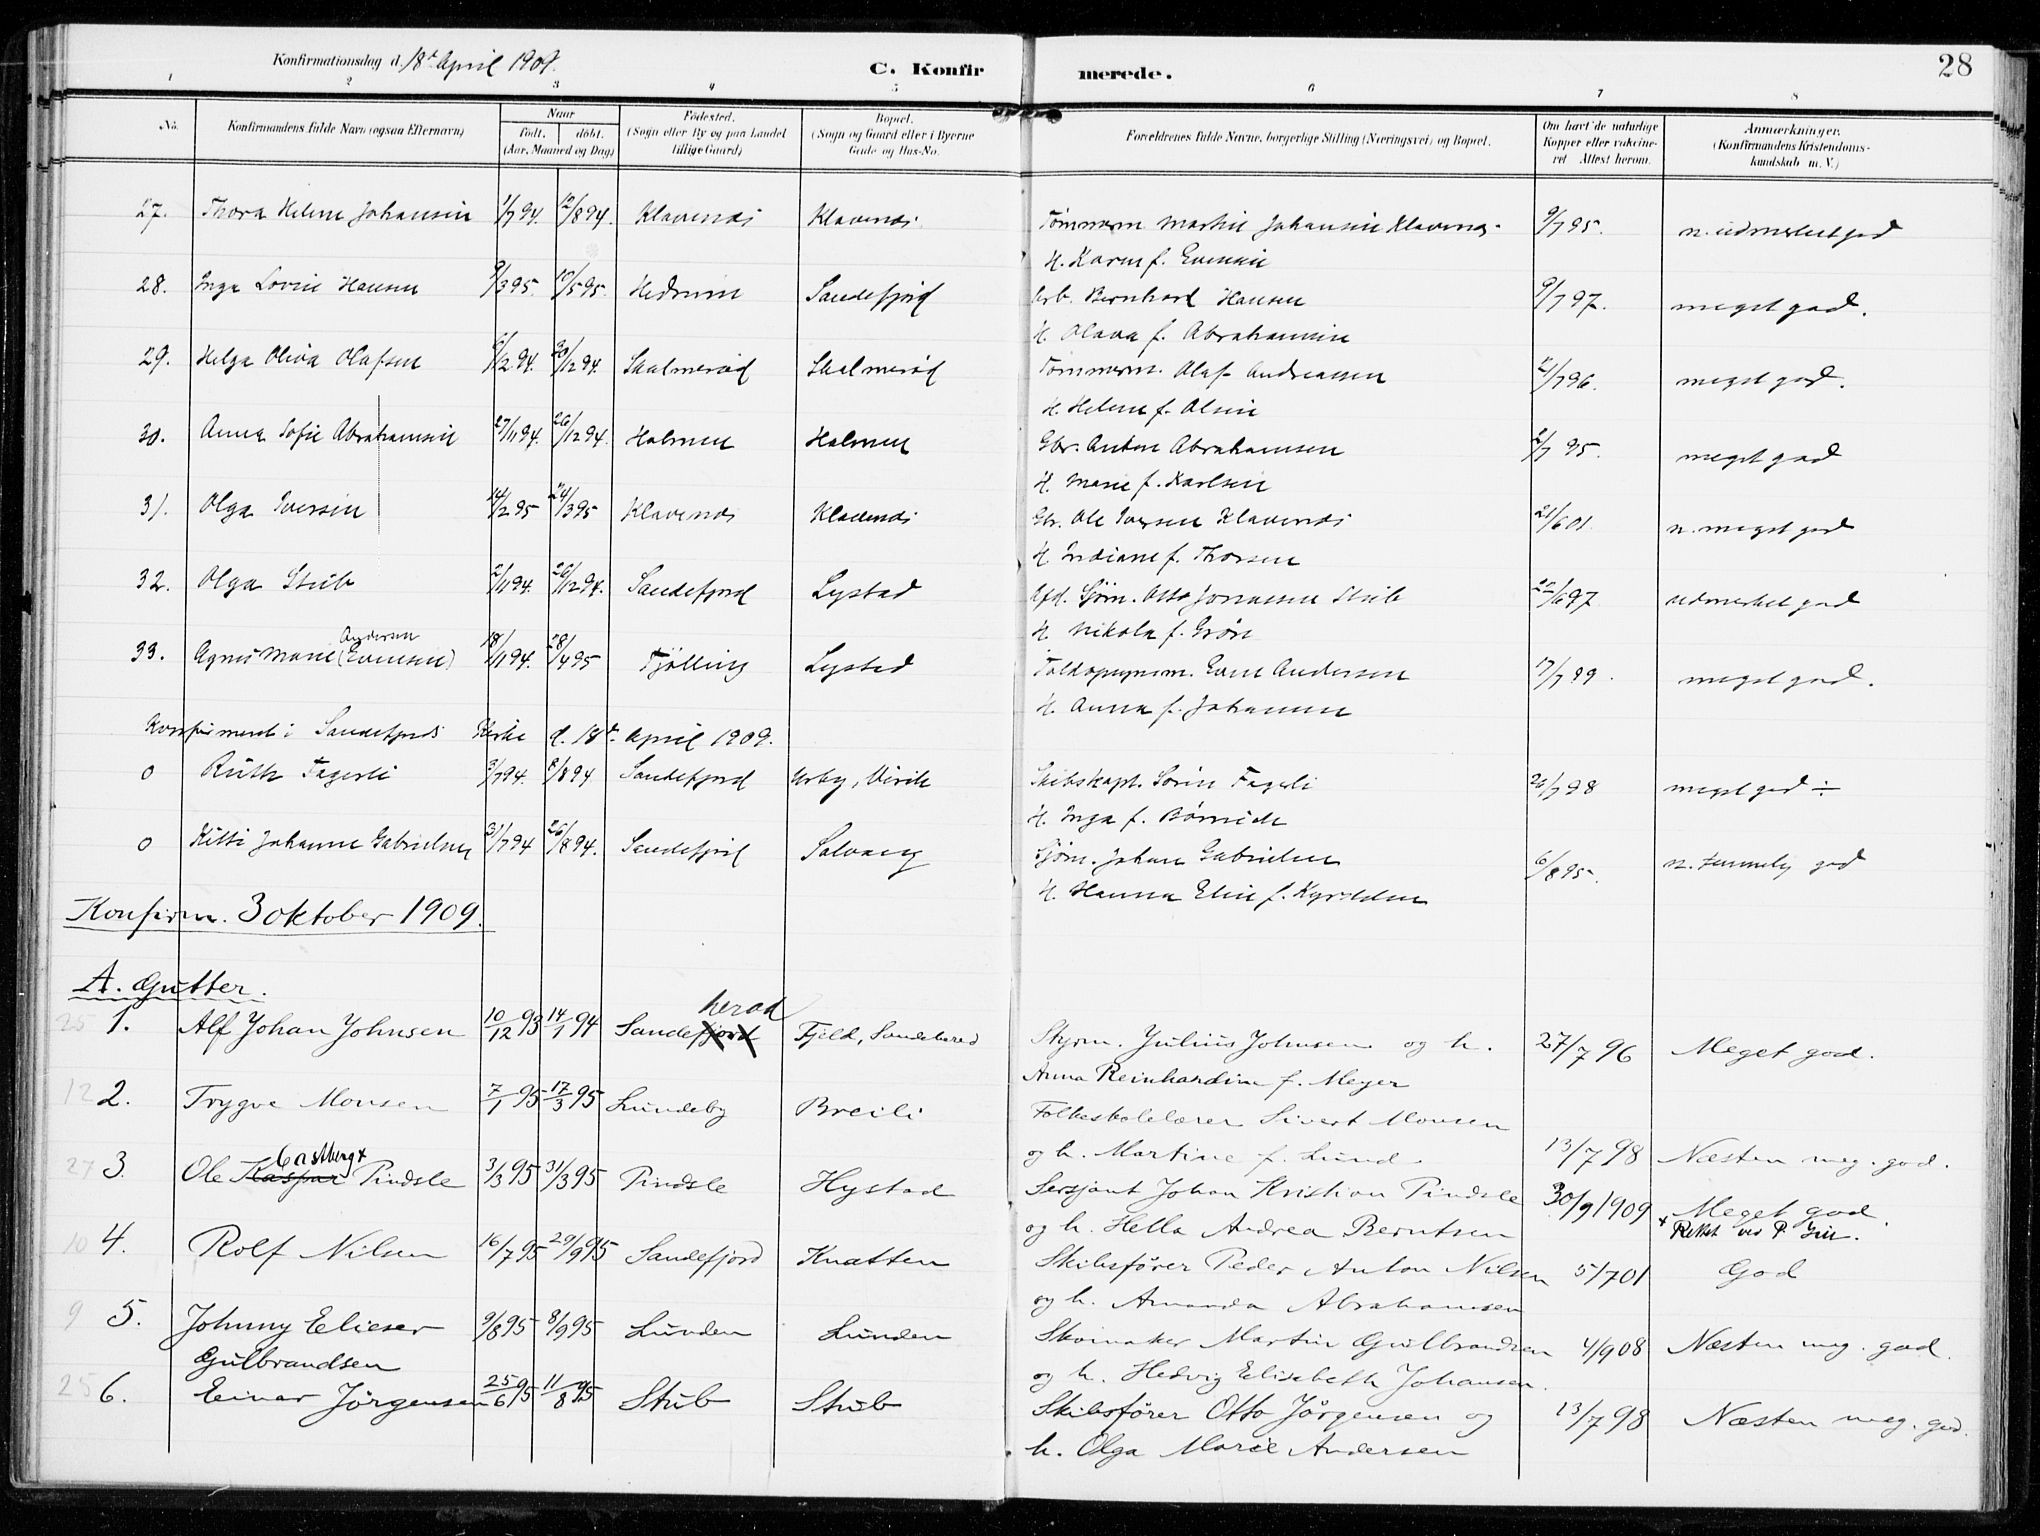 Konfirmationsdag d. 18de April 1909.
C. Konfir merede.
28
1 2 3 4 5 6 7 8
No. Konfirmandens fulde Navn (ogsaa Efternavn) Naar født. døbt. (Aar, Maaned og Dag) Fødested. (Sogn eller By og paa Landet tillige Gaard) Bopæl. (Sogn og Gaard eller i Byerne Gade og Hus-No. Forældrenes fulde Navne, borgerlige Stilling (Næringsvei) og Bopæl. Om havt de naturlige Kopper eller vaccineret Attest herom. Anmærkninger. (Konfirmandens Kristendomskundskab m. V.)
27. Thora Helene Johansen 1/7 94. 12/8 94. Klavenes Klavenes Tømmerm Martin Johansen Klavenes 9/7 95. n. udmerket god
H. Karen f. Evensen
28. Inga Lovise Hansen 9/3 95. 10/5 95. Hedrum Sandefjord Arb. Bernhard Hansen 9/7 97. meget god.
H. Olava f. Abrahamsen
29. Helga Oliva Olafsen 6/12 94. 30/12 94. Skalmerød Skalmerød Tømmerm. Olaf Andreassen /7 96. meget god.
H. Helene f. Olsen
30. Anna Sofie Abrahamsen 27/11 94. 26/12 94. Holmen Holmen Gbr. Anton Abrahamsen 2/7 95. meget god
H. Marie f. Karlsen
31. Olga Iversen 14/2 95 24/3 95 Klavenes Klavenes Gbr. Ole Iversen Klavenes 21/6 01. n. meget god
H. Indiane f. Thorsen
32. Olga Stub 2/11 94. 26/12 94. Sandefjord Lystad Afd. Sjøm. Otto Jonassen Stub 22/6 97 udmerket god
H. Nikola f. Grøn
33. Agnes Marie (Evensen) Andersen 18/11 94. 28/4 95 Tjølling Lystad Toldopsynsm. Even Andersen 17/7 99. meget god.
H. Anna f. Johansen
Konfirmeret i Sandefjords Kirke d. 18de April 1909.
0 Ruth Fagerli 3/7 94. 8/8 94 Sandefjord Virik Skibskapt. Søren Fagerli 20/7 98 meget god ÷
H. Inga f.
0 Kitti Johanne Gabrielsen 31/7 94 26/8 94. Sandefjord Solvang Sjøm. Johan Gabrielsen 6/8 95. n. temmelig god
H. Hanna Elise f.
Konfirm. 3 oktober 1909.
A. Gutter.
25 1. Alf Johan Johnsen 10/12 93 14/1 94 Sandefjord herad Fjeld, Sandeherred Styrm. Julius Johnsen og h. 27/7 96 Meget god.
Anna Reinhardine f. Meyer
12 2. Trygve Monsen 7/1 95 17/3 95 Lundeby Breili Folkeskolelærer Sivert Monsen
og h. Martine f. Lund 13/7 98 Næsten meg. god.
27 3. Ole Kaspar Castberg x Pindsle 3/3 95 31/3 95 Pindsle Hystad Sersjant Johan Kristian Pindsle 30/9 1909 Meget god.
og h. Hella Andrea Berntsen x Rettet ved P.
10 4. Rolf Nilsen 16/7 95 29/9 95 Sandefjord Knatten Skibsfører Peder Anton Nilsen 5/7 01 God
og h. Amanda Abrahamsen
9 5. Johnny Elieser 9/8 95 8/9 95 Lunden Lunden Skomaker Martin Gulbrandsen 4/9 08 Næsten meg. god.
Gulbrandsen og h. Hedvig Elisabeth Johansen.
25 6. Einar Jørgensen 25/6 95 11/8 95 Stub Stub Skibsfører Otto Jørgensen og 13/7 98 Næsten meg. god.
h. Olga Marie Andersen